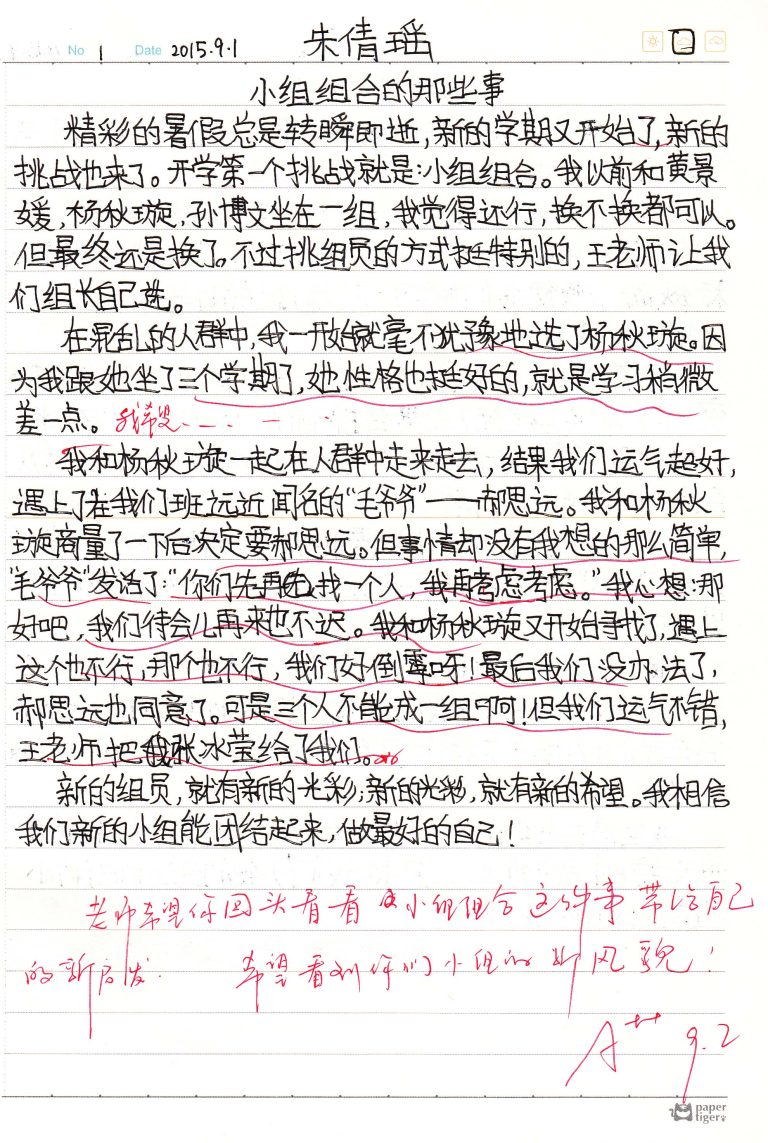 No 1 Date 2015.9.1 朱倩瑶
小组组合的那些事
精彩的暑假总是转瞬即逝,新的学期又开始了,新的
挑战也来了。开学第一个挑战就是:小组组合。我以前和黄景
媛,杨秋璇,孙博文坐在一组,我觉得还行,换不换都可以。
但最终还是换了。不过挑组员的方式挺特别的,王老师让我
们组长自己选。
在混乱的人群中,我一开始就毫不犹豫地选了杨秋璇。因
为我跟她坐了三个学期了,她性格也挺好的,就是学习稍微
差一点。我希望
我和杨秋璇一起在人群中走来走去,结果我们运气超好,
遇上了在我们班远近闻名的“毛爷爷”——郝思远。我和杨秋
璇商量了一下后决定要郝思远。但事情却没有我想的那么简单,
“毛爷爷”发话了:“你们先再去找一个人,我再考虑考虑。”我心想:那
好吧,我们待会儿再来也不迟。我和杨秋璇又开始寻找了,遇上
这个也不行,那个也不行,我们好倒霉呀!最后我们没办法了,
郝思远也同意了。可是三个人不能成一组啊!但我们运气不错,
王老师把张冰莹给了我们。
新的组员,就有新的光彩;新的光彩,就有新的希望。我相信
我们新的小组能团结起来,做最好的自己!
老师希望你回头看看小组组合这件事,带给自己
的新启发. 希望看到你们小组的新风貌!
A++ 9.2
paper
tiger